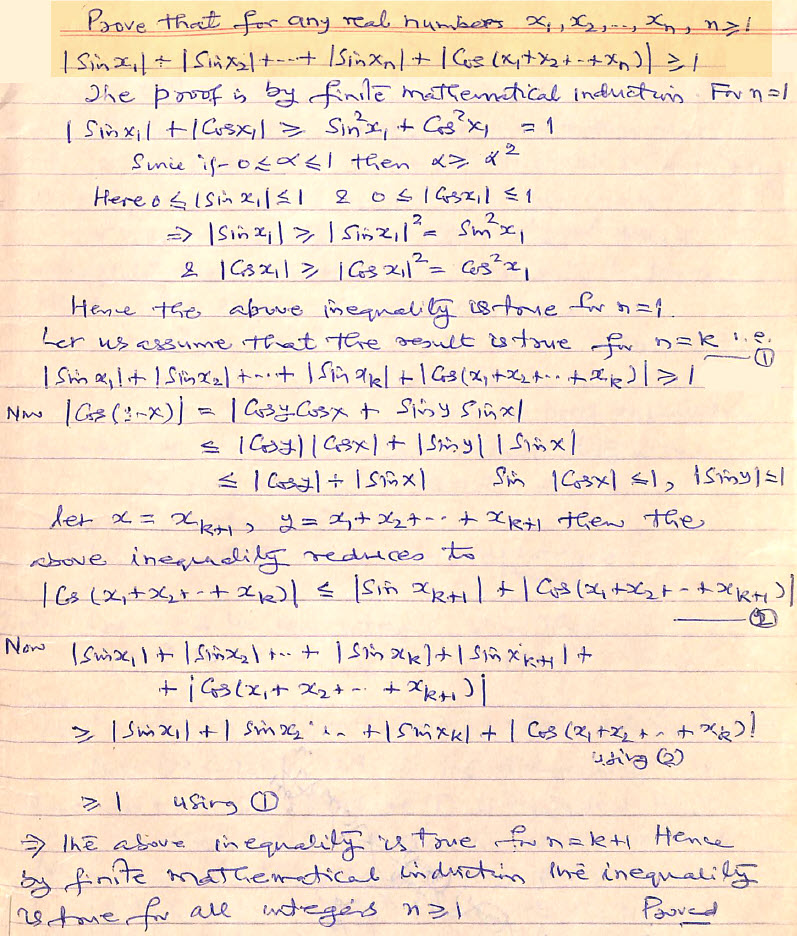 Prove that for any real numbers x₁, x₂, --, xₙ, n ≥ 1
|Sin x₁| + |Sin x₂| + --- + |Sin xₙ| + |Cos (x₁+x₂+--+xₙ)| ≥ 1
The proof is by finite mathematical induction. For n=1
|Sin x₁| + |Cos x₁| ≥ Sin²x₁ + Cos²x₁ = 1
Since if 0 ≤ α ≤ 1 then α ≥ α²
Here 0 ≤ |Sin x₁| ≤ 1 & 0 ≤ |Cos x₁| ≤ 1
⇒ |Sin x₁| ≥ |Sin x₁|² = Sin²x₁
& |Cos x₁| ≥ |Cos x₁|² = Cos²x₁
Hence the above inequality is true for n=1.
Let us assume that the result is true for n=k i.e.
|Sin x₁| + |Sin x₂| + --- + |Sin xₖ| + |Cos (x₁+x₂+--+xₖ)| ≥ 1 —— ①
Now |Cos (y-x)| = |Cosy Cosx + Siny Sinx|
≤ |Cosy| |Cosx| + |Siny| |Sinx|
≤ |Cosy| + |Sinx| Sin |Cosx| ≤ 1, |Siny| ≤ 1
let x = xₖ₊₁, y = x₁+x₂+-- + xₖ₊₁ then the
above inequality reduces to
|Cos (x₁+x₂+--+xₖ)| ≤ |Sin xₖ₊₁| + |Cos (x₁+x₂+--+xₖ₊₁)|
—— ②
Now |Sin x₁| + |Sin x₂| +-- + |Sin xₖ| + |Sin xₖ₊₁| +
+ |Cos (x₁+x₂+-- +xₖ₊₁)|
≥ |Sin x₁| + |Sin x₂ -- + |Sin xₖ| + |Cos (x₁+x₂+--+xₖ)|
using (2)
≥ 1 using ①
⇒ The above inequality is true for n=k+1 Hence
by finite mathematical induction the inequality
is true for all integers n ≥ 1 Proved